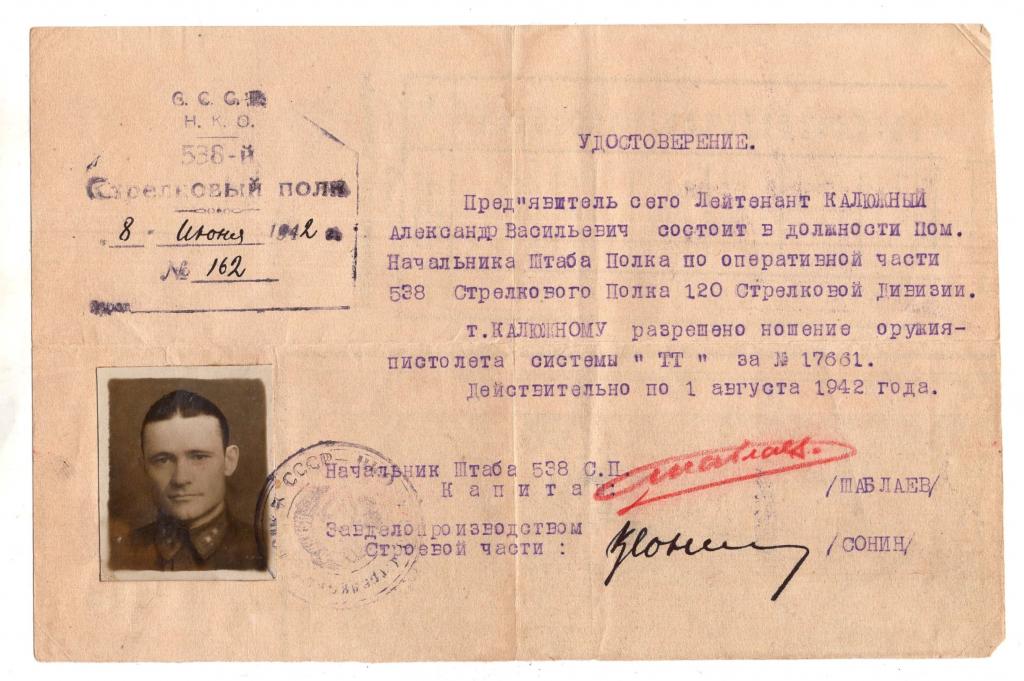 С. С. С. Р.
Н. К. О.
538-й
Стрелковый полк
8 Июня 1942 г.
№ 162
УДОСТОВЕРЕНИЕ.
Пред"явитель сего Лейтенант КАЛЮЖНЫЙ
Александр Васильевич состоит в должности Пом.
Начальника Штаба Полка по оперативной части
538 Стрелкового Полка 120 Стрелковой Дивизии.
т.КАЛЮЖНОМУ разрешено ношение оружия-
пистолета системы " ТТ " за № 17661.
Действительно по 1 августа 1942 года.
Начальник Штаба 538 С.П.
Капитан: /ШАБЛАЕВ/
Завделопроизводством
Строевой части : /СОНИН/
СССР